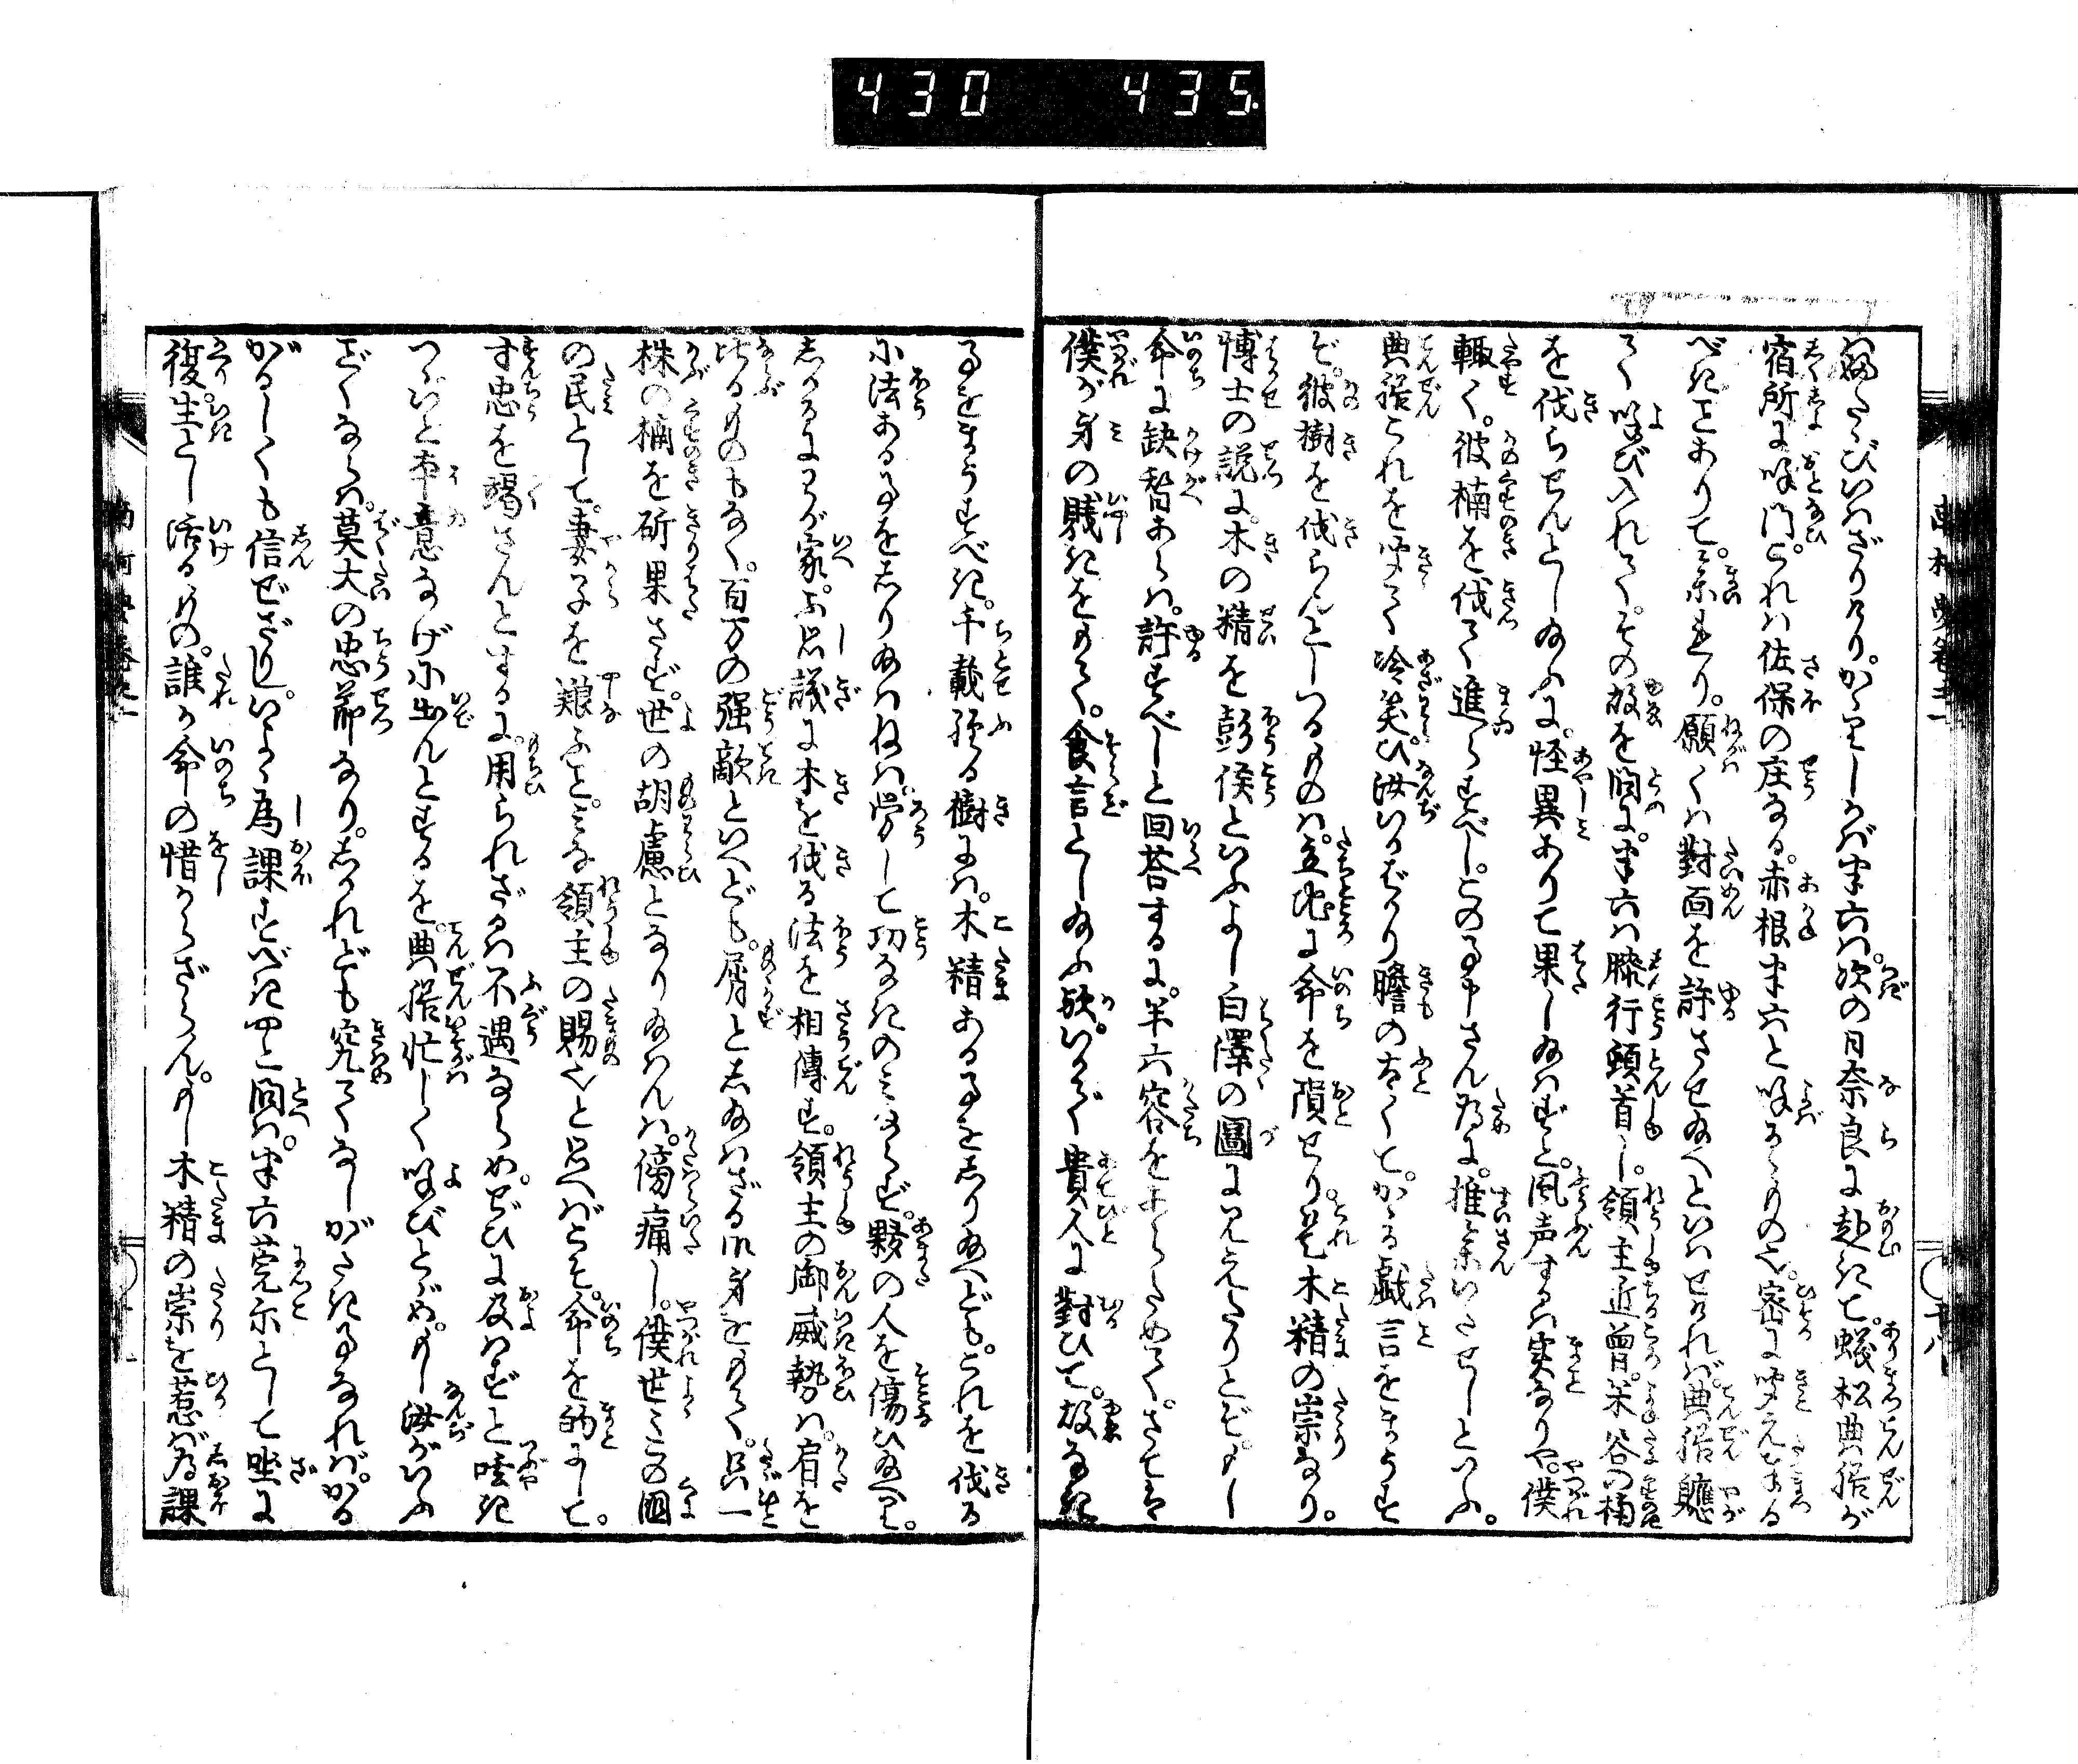 430 435
は。ふたゝびいはざりけり。かゝりしかば半六は。次の日奈良に赴きて。蟻松典膳が
宿所に呼門。これは佐保の庄なる。赤根半六と呼るゝもの也。密に聞えまゐる
べきことありて。来れり。願くは對面を許させ給へといはせければ。典膳軈
て喚び入れて。その故を問に。半六は膝行頓首し。領主近曽。笑谷の楠
を伐らせんとし給ふに。怪異ありて果し給はずと。風声するは実なりや。僕
輙く。彼楠を伐て進らすべし。この事申さん為に。推参いたせしといふ。
典膳これを聞て冷笑ひ。汝いかばかり膽の太くて。かゝる戯言をまうす
ぞ。彼樹を伐らんとしつるものは。立地に命を隕せり。是木精の祟なり。
博士の説に。木の精を彭侯といふよし白澤の圖に見えたりとぞ。もし
命に缺替あらは。許すべしと回荅するに。半六容をあらためて。さては
僕が身の賤きをもて。食言とし給ふ歟。いかで貴人に對ひて。故なき
事をまうすべき。千載經る樹には。木精ある事をしり給へども。これを伐る
に法ある事をしり給はねは。労して功なきのみならず。夥の人を傷ひ給へり。
しかるにわが家。不思議に木を伐る法を相傳す。領主の御威勢は。肩を
比るものもなく。百万の强敵といへども。屑としたまはざる御身をもて。只一
株の楠を斫果さず。世の胡慮となり給はんは。傍痛し。僕世々この國
の民として。妻子を艱ふこと。みな領主の賜也と思へばこそ。命を的にして。
寸忠を竭さんとするに。用られざるは不遇ならめ。ぜひに及はずと呟き
つゝ。いと本意なげに出んとするを。典膳忙しく喚びとゞめ。もし汝がいふ
ごくならは。莫大の忠節なり。しかれども究てなしがたき事なれば。かる
がるしくも信ぜざりし。いかに為課すべきやと問は。半六莞尓として坐に
復。生とし活るもの。誰か命の惜からざらん。もし木精の祟を惹ば為課